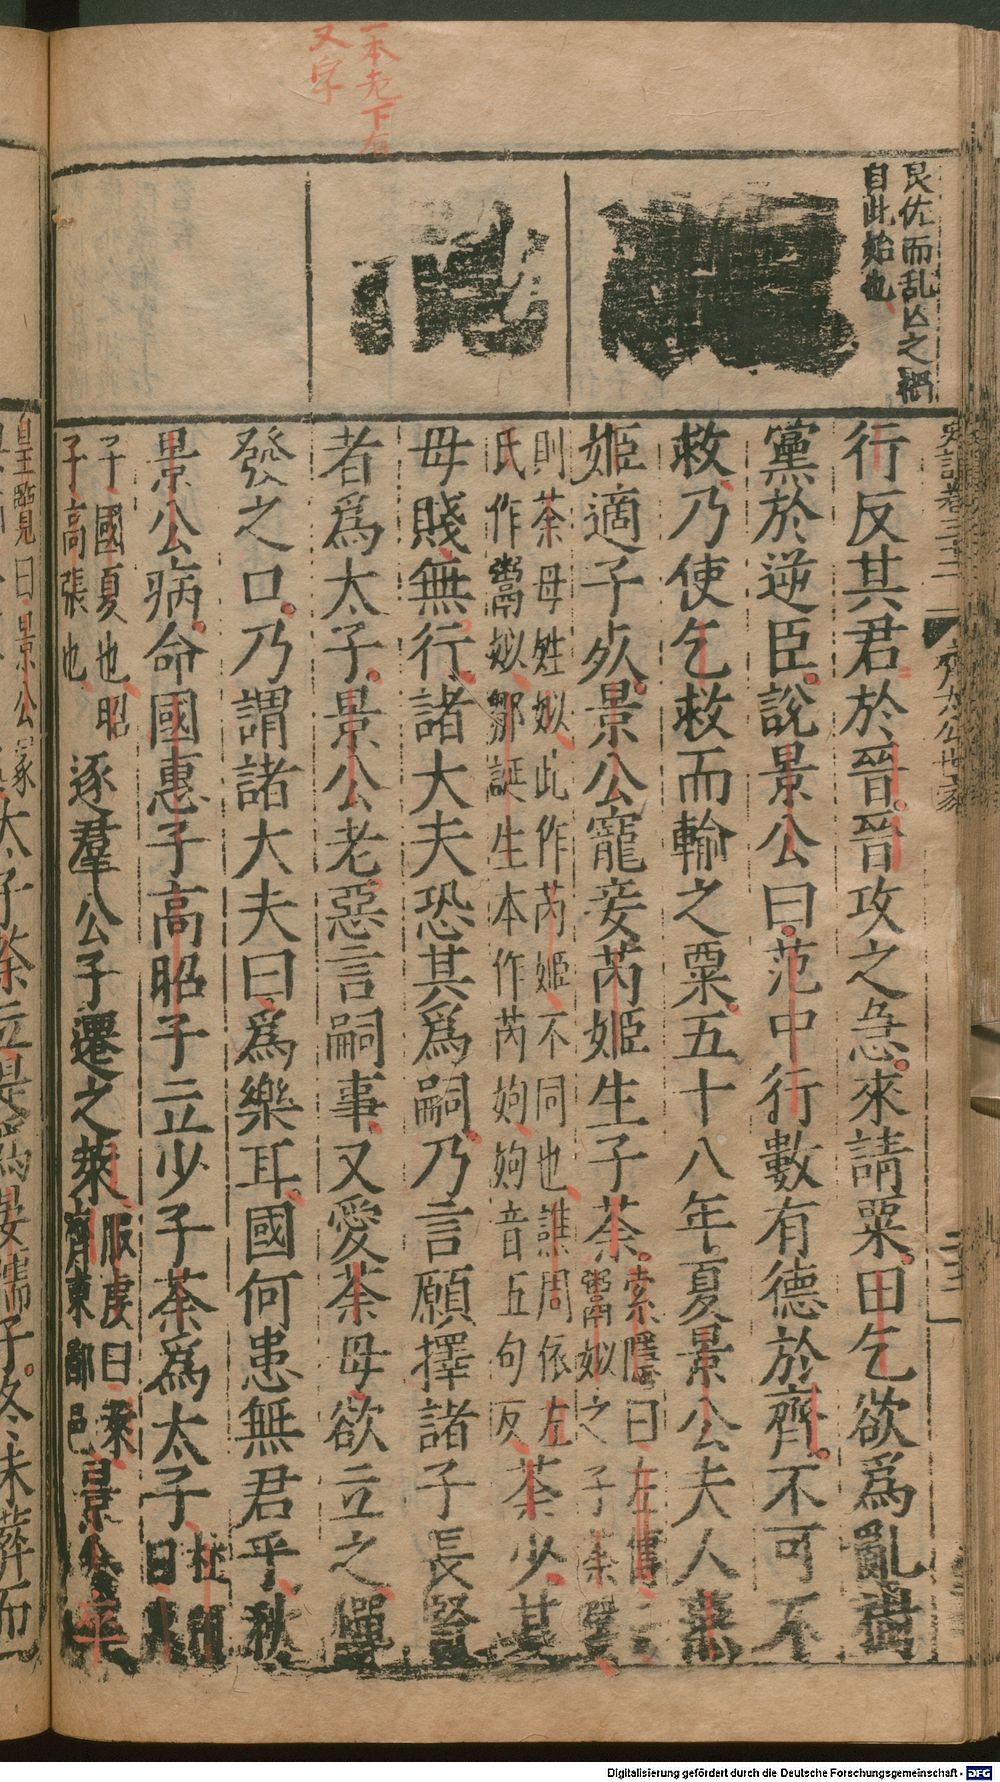 一本老下有
又字
良佐而乱亡之禍
自此始也
行反其君於晉晉攻之急來請粟田乞欲爲亂樹
黨於逆臣說景公曰范中行數有德於齊不可不
救乃使乞救而輸之粟五十八年夏景公夫人燕
姬適子死景公寵妾芮姬生子荼索隱曰左傳云
鬻姒之子荼嬖
則荼母姓姒此作芮姬不同也譙周依左
氏作鬻姒鄒誕生本作芮姁姁音五句反荼少其
母賤無行諸大夫恐其爲嗣乃言願擇諸子長賢
者爲太子景公老惡言嗣事又愛荼母欲立之憚
發之口乃謂諸大夫曰爲樂耳國何患無君乎秋
景公病命國惠子高昭子立少子荼爲太子杜預
曰惠
子國夏也昭
子高張也逐羣公子遷之萊服虔曰萊
齊東鄙邑景公卒
皇覽曰景公冢
太子荼立是爲晏孺子冬未葬而
史記卷三十二
齊太公世家
Digitalisierung gefördert durch die Deutsche Forschungsgemeinschaft - DFG